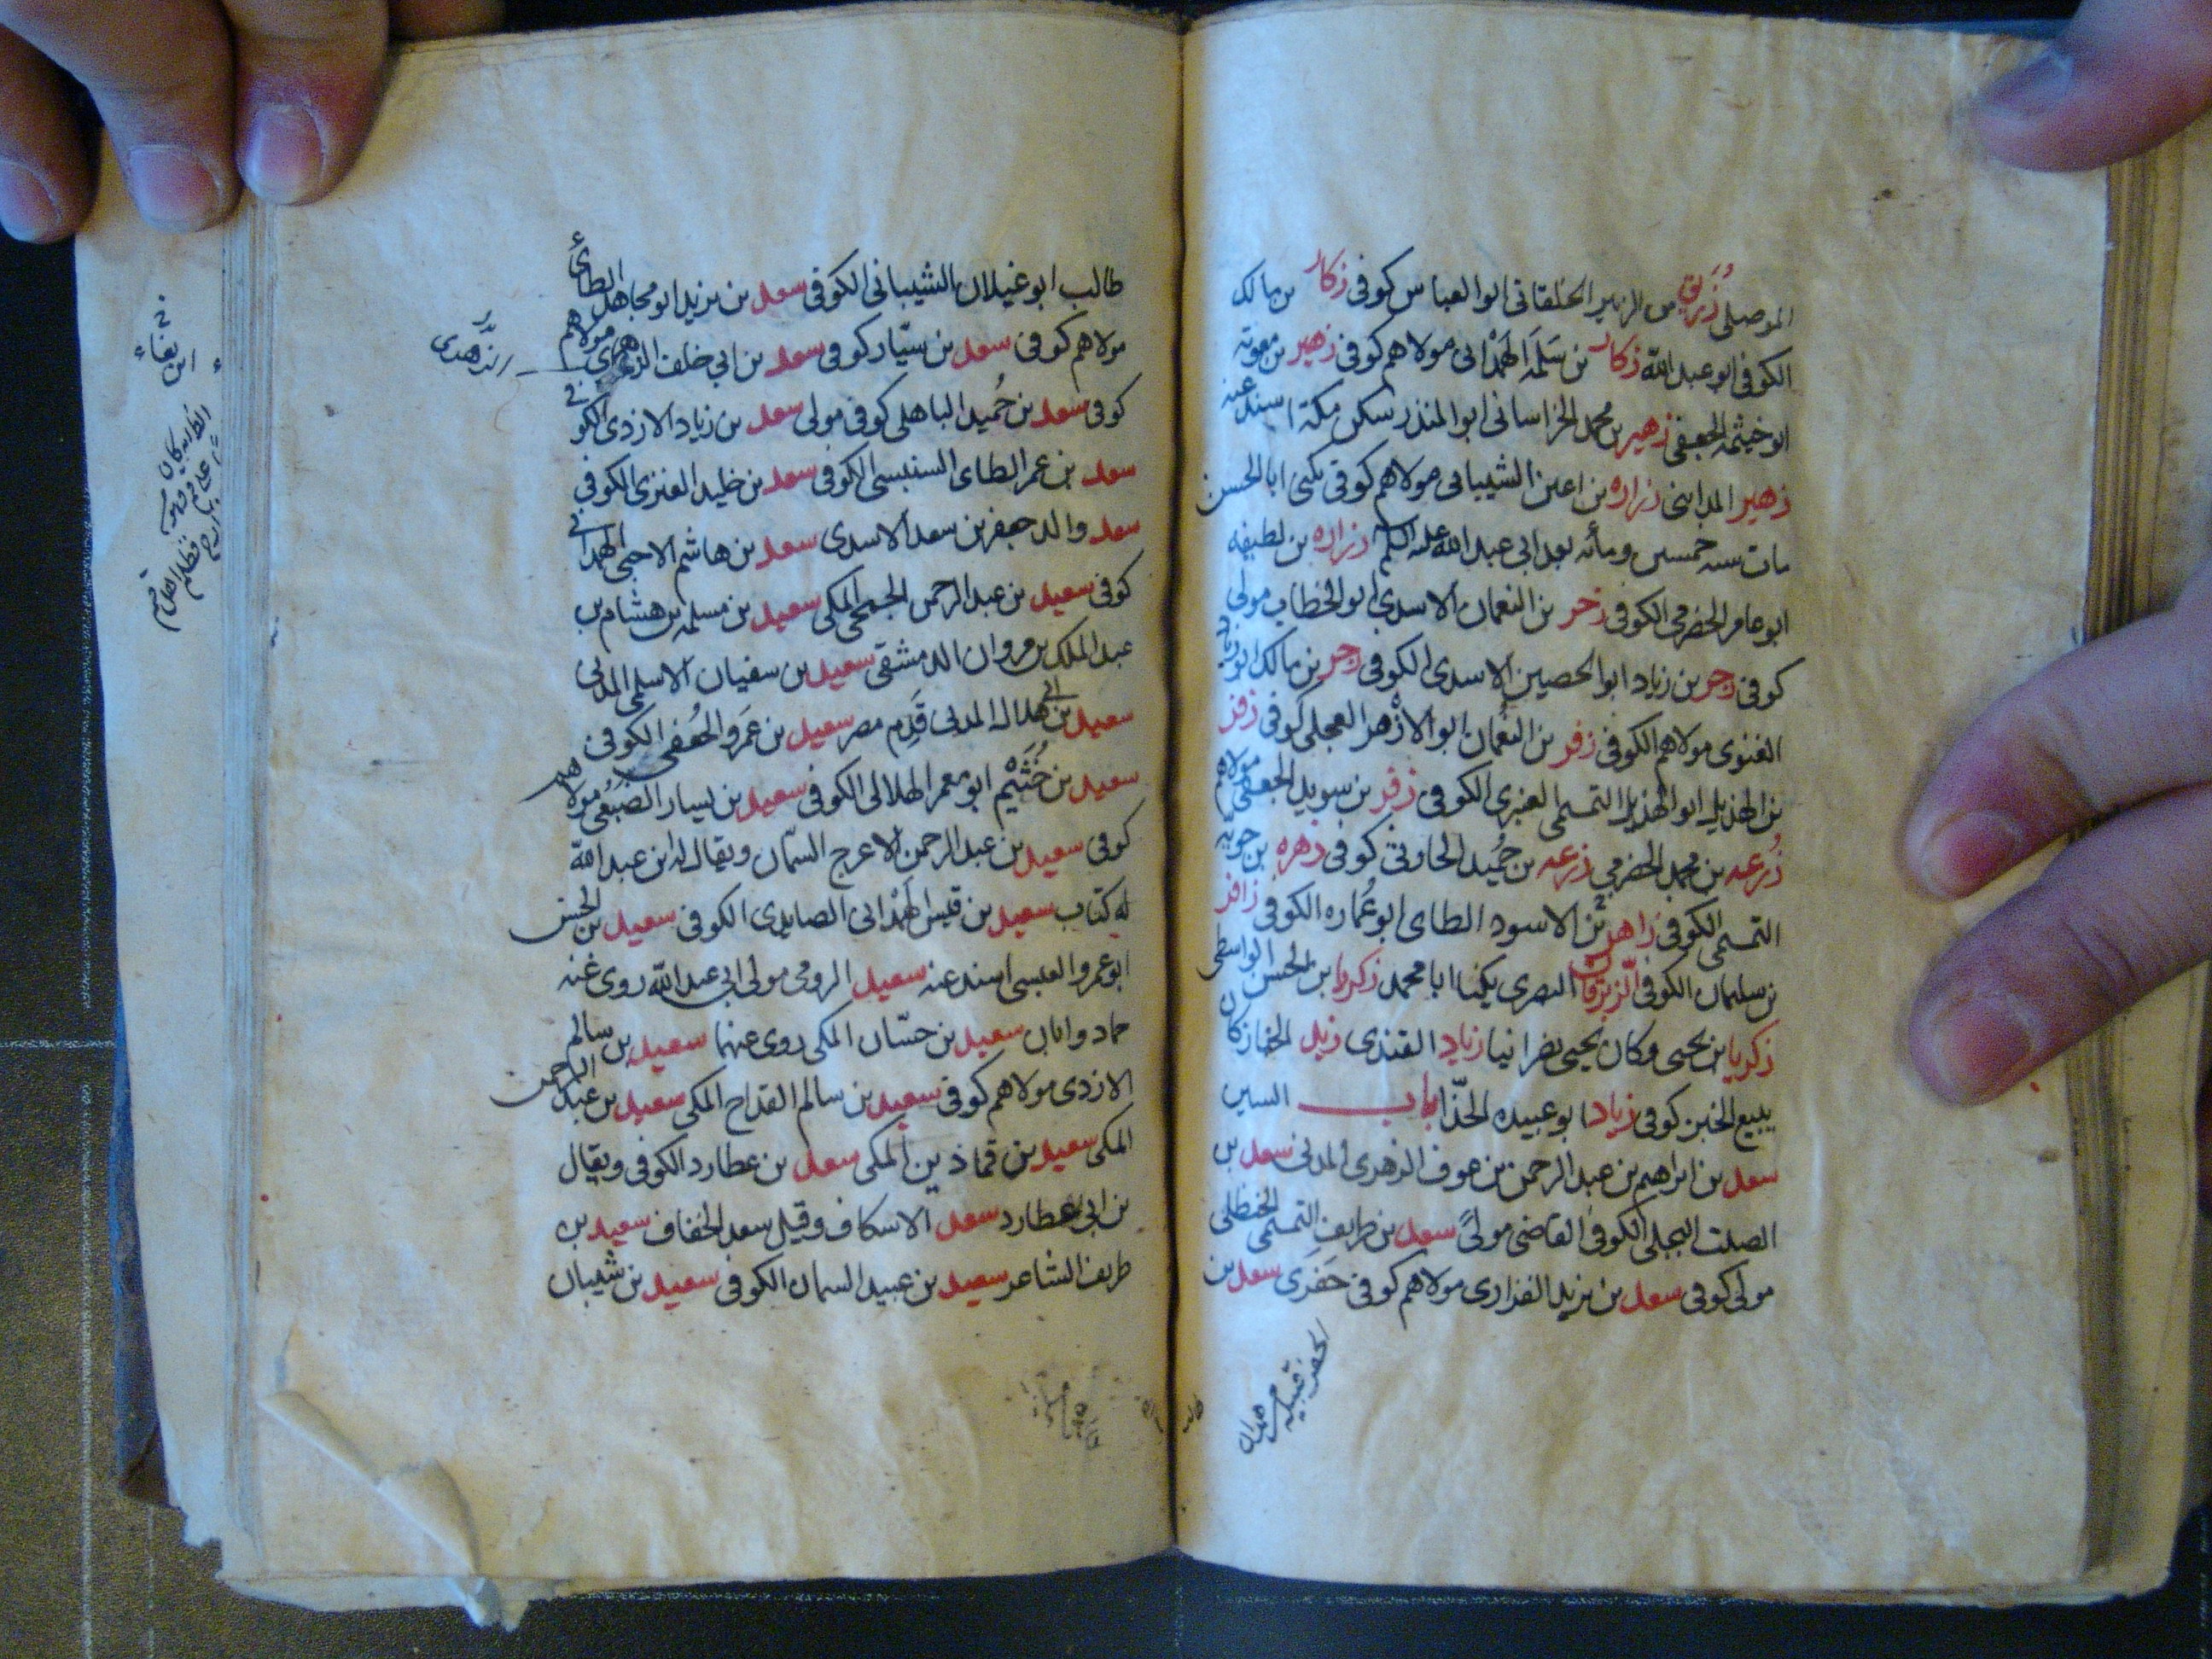 الموصلى زُرَيق بن الزبير الخلقانى ابو العباس كوفى زكار بن مالك
الكوفى ابو عبد الله زكار بن سَلَمه الهَمْدانى مولاهم كوفى زهير بن معوية
ابو خيثمه الجعفى زهير بن محمد الخراسانى ابو المنذر سكن مكة اسند عنه
زهير المداينى زراره بن اعين الشيبانى مولاهم كوفى يكنى ابا الحسن
مات سنه خمسين ومأئه بعد ابى عبد الله عليه السلم زراره بن لطيفه
ابو عامر الحضرمى الكوفى زحر بن النعمان الاسدى ابو الخطاب مولى
كوفى زحر بن زياد ابو الحصين الاسدى الكوفى زحر بن مالك ابو زياد
الغنوى مولاهم الكوفى زفر بن النعمان ابو الازهر العجلى كوفى زفر
بن الهذيل ابو الهذيل التميمى العنبرى الكوفى زفر بن سويد الجعفى مولاهم
زُرعه بن محمد الحضرمى زرعه بن حُميد الحارثى كوفى زهره بن حويه
التميمى الكوفى زاهر بن الاسود الطاى ابو عُماره الكوفى زافر
بن سليمان الكوفى الزبرقان البصرى يكنا ابا محمد زكريا بن الحسن الواسطى
زكريا بن يحيى وكان يحيى نصرانيا زياد القندى زيد الخباز كان
يبيع الخبز كوفى زياد ابو عبيده الحذّا باب السين
سعد بن ابراهيم بن عبد الرحمن بن عوف الزهرى المدنى سعد بن
الصلت البجلى الكوفى القاضى مولىً سعد بن طريف التميمى الحنظلى
مولى كوفى سعد بن يزيد الفزارى مولاهم كوفى حَفَرى سعد بن
الحفر قبيله من همدان
طالب
طالب ابو غيلان الشيبانى الكوفى سعد بن يزيد ابو مجاهد الطائى
مولاهم كوفى سعد بن سيّار كوفى سعد بن ابى خلف الزهرى مولاهم
الزّهدى
كوفى سعد بن حُميد الباهلى كوفى مولى سعد بن زياد الازدى الكوفى
سعد بن عمر الطاى السنبسى الكوفى سعد بن خليد العنزى الكوفى
سعد والد جعفر بن سعد الاسدى سعد بن هاشم الارحبى الهمدانى
كوفى سعيد بن عبد الرحمن الجمحى المكى سعيد بن مسلمه بن هشام بن
عبد الملك بن مروان الدمشقى سعيد بن سفيان الاسلمى المدنى
سعيد بن ابى هلال المدنى قَدِم مصر سعيد بن عَمَرو الجُعفى الكوفى
سعيد بن خُثَيْم ابو معمر الهلالى الكوفى سعيد بن يسار الضُبَعى مولاهم
كوفى سعيد بن عبد الرحمن الاعرج السمّان ويقال له ابن عبد الله
له كتاب سعيد بن قيس الهَمْدانى الصايدى الكوفى سعيد بن الحسن
ابو عمرو العبسى اسند عنه سعيد الرومى مولى ابى عبد الله روى عنه
حماد وابان سعيد بن حسّان المكى روى عنهما سعيد بن سالم
الازدى مولاهم كوفى سعيد بن سالم القداح المكى سعيد بن عبد الرحمن
المكى سعيد بن قماذين المكى سعد بن عطارد الكوفى ويقال
بن ابى عطارد سعد الاسكاف وقيل سعد الخفاف سعيد بن
طريف الشاعر سعيد بن عبيد السمان الكوفى سعيد بن شيبان